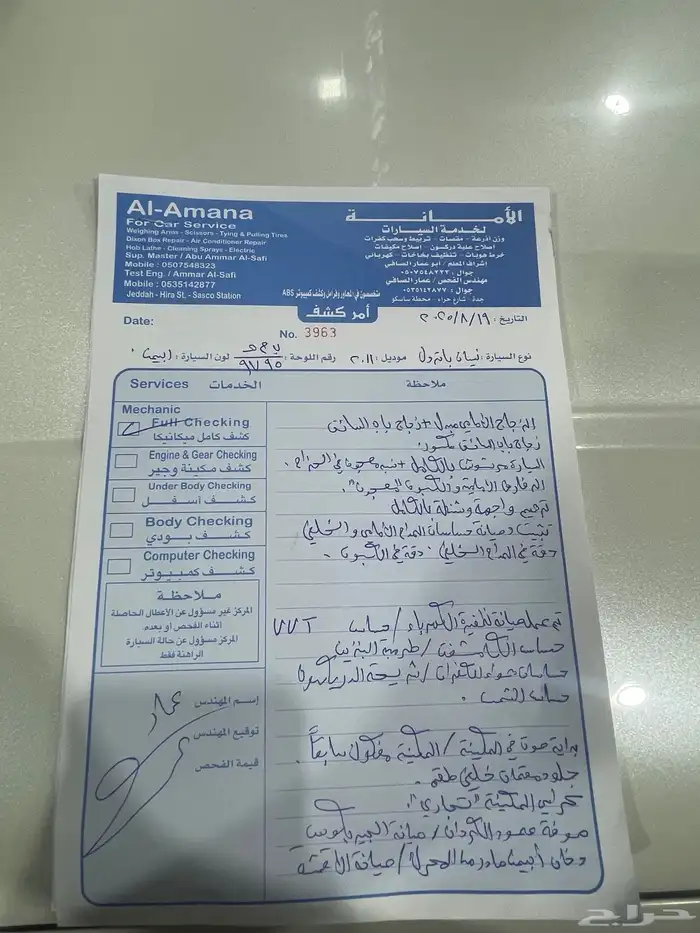 Al-Amana
For Car Service
Weighing Arms - Scissors - Tying & Pulling Tires
Dixon Box Repair - Air Conditioner Repair
Hob Lathe - Cleaning Sprays - Electric
Sup. Master / Abu Ammar Al-Safi
Mobile : 0507548323
Test Eng. / Ammar Al-Safi
Mobile : 0535142877
Jeddah - Hira St. - Sasco Station
الأمانة
لخدمة السيارات
وزن أذرعة - مقصات - تربيط وسحب كفرات
إصلاح علبة دركسون - إصلاح مكيفات
خرط هوبات - تنظيف بخاخات - كهربائي
إشراف المعلم / أبو عمار الصافي
جوال : ٠٥٠٧٥٤٨٣٢٣
مهندس الفحص / عمار الصافي
جوال : ٠٥٣٥١٤٢٨٧٧
جدة - شارع حراء - محطة ساسكو
متخصصون في المحاور وفرامل وكشف كمبيوتر ABS
أمر كشف
Date:
التاريخ : ٢٠٢٥/٨/١٩
No. 3963
نوع السيارة : نيسان باترول موديل : ٢٠١١ رقم اللوحة : لون السيارة : أبيض
Services الخدمات
ملاحظة
Mechanic
Full Checking
كشف كامل ميكانيكا
Engine & Gear Checking
كشف مكينة وجير
Under Body Checking
كشف أسفل
Body Checking
كشف بودي
Computer Checking
كشف كمبيوتر
ملاحظة
المركز غير مسؤول عن الأعطال الحاصلة
أثناء الفحص أو بعدم
المركز مسؤول عن حالة السيارة
الراهنة فقط
إسم المهندس عمار
توقيع المهندس
قيمة الفحص
الزجاج الأمامي مبدل + زجاج باب السائق
زجاج باب السائق مكسور
السيارة مرشوش بالكامل
ترميم واجهة وشنطة بالكامل
تثبيت وصيانة حساسات الصدام الأمامي والخلفي
دقة في الصدام الخلفي
تم عمل صيانة لظفيرة الكهرباء / حساس VVT
حساس الكمشفت / طرمبة البنزين
حساسات هواء الكفرات / شريحة الدركسون
حساس الشمس .
بداية صوت في المكينة / المكينة مفكوك سابقاً .
جلود مقصات خلفي طقم .
كراسي المكينة "تجاري" .
صوفة عمود الكردان / صيانة الجير بكس
دخان أبيض / صيانة الأقمشة
حراج